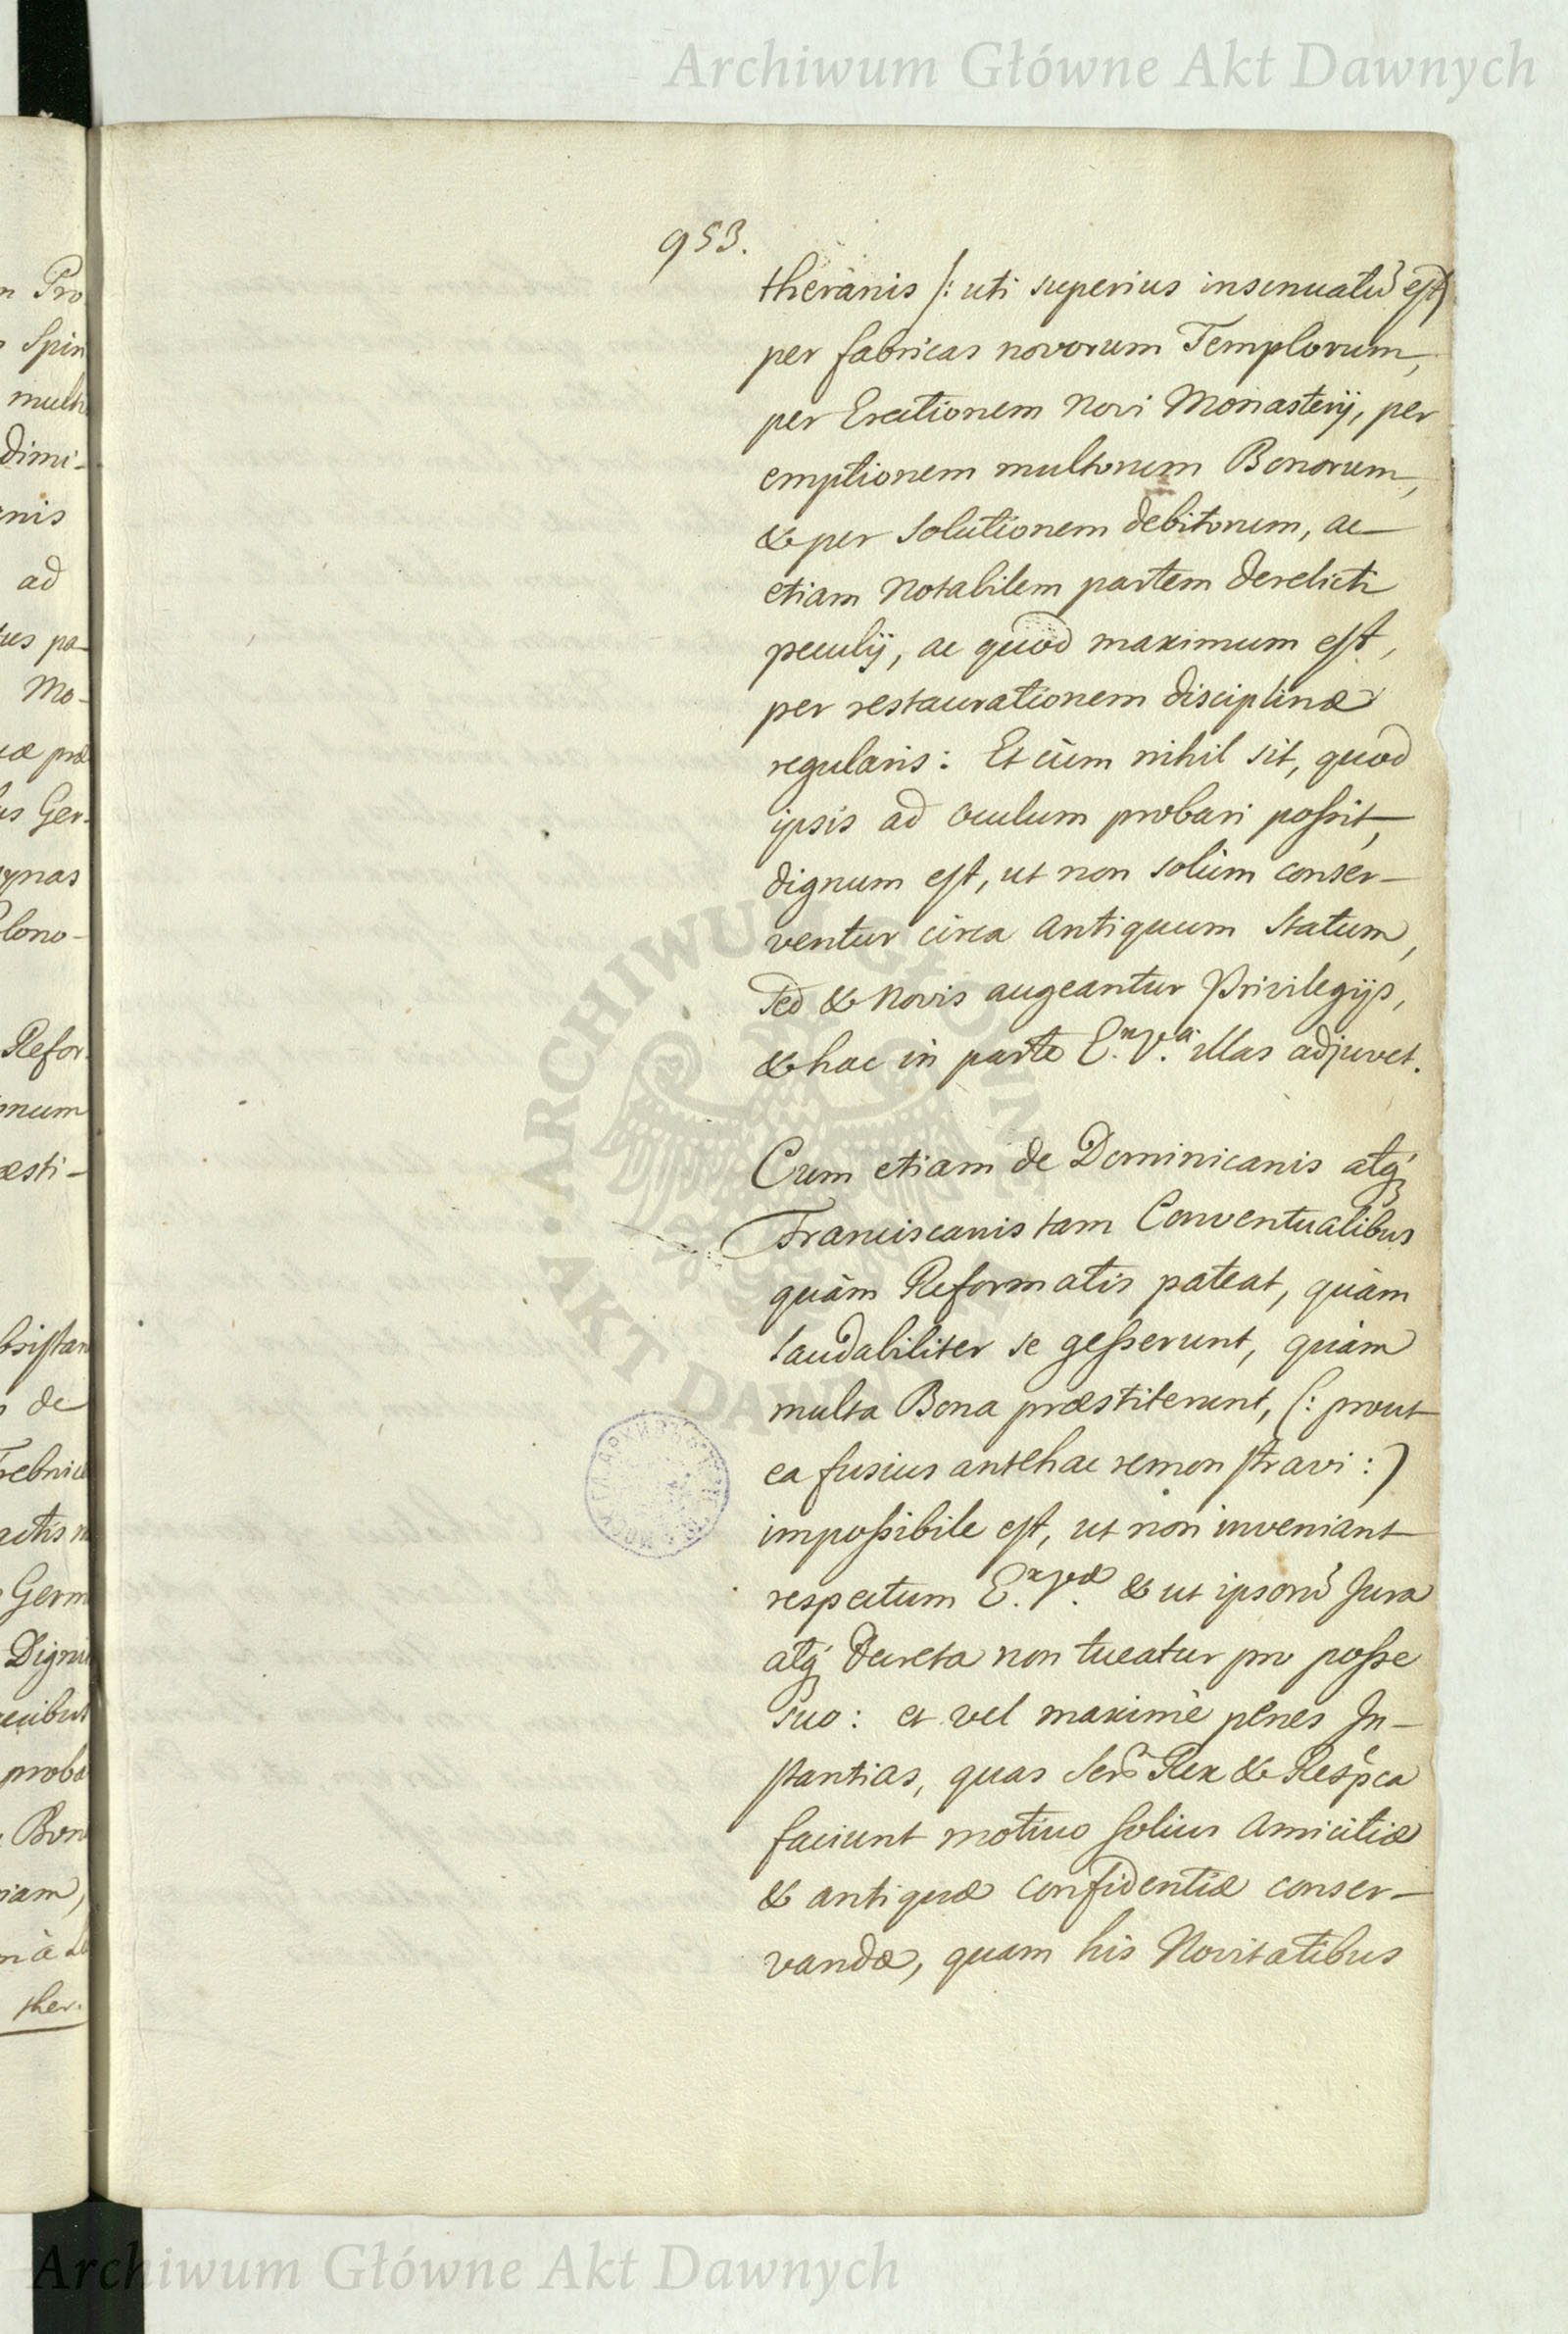 Archiwum Główne Akt Dawnych
953.
theranis /: uti superius insinuatũ est)
per fabricas novorum Templorum,
per Erectionem Novi Monasterij, per
emptionem multorum Bonorum,
& per solutionem debitorum, ac
etiam Notabilem partem derelicti
peculij, ac quod maximum est,
per restaurationem disciplinæ
regularis: Et cùm nihil sit, quod
ipsis ad oculum probari possit,
dignum est, ut non solùm conser-
ventur circa Antiquum Statum,
sed & Novis augeantur Privilegijs,
& hac in parte E.xV.a illas adjuvet.
Cum etiam de Dominicanis atq́
Franciscanis tam Conventualibus
quàm Reformatis pateat, quàm
laudabiliter se gesserunt, quàm
multa Bona præstiterunt, (: prout
ea fusius antehac remonstravi :)
impossibile est, ut non inveniant
respectum E.xV.æ & ut ipsorũ Jura
atq́ Decreta non tueatur pro posse
suo: et vel maximè penes In-
stantias, quas Serũs Rex & Respca
faciunt motivo solius Amicitiæ
& antiquæ confidentiæ conser-
vandæ, quam his Novitatibus
n Pro
Spin
multi
dimi-
nis
ad
tus pa-
Mo-
us Ger-
lono-
Refor-
num
æsti-
de
Trebnic
Germ
Dign
proba
Bon
iam,
ther.
ARCHIWUM GŁÓWNE AKT DAWNYCH
Archiwum Główne Akt Dawnych